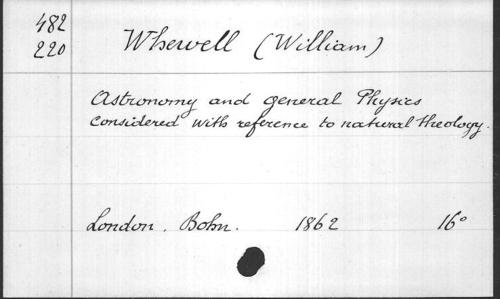 482
220
Whewell (William)
Astronomy and general Physics
considered with reference to natural theology.
London. Bohn. 1862 16°